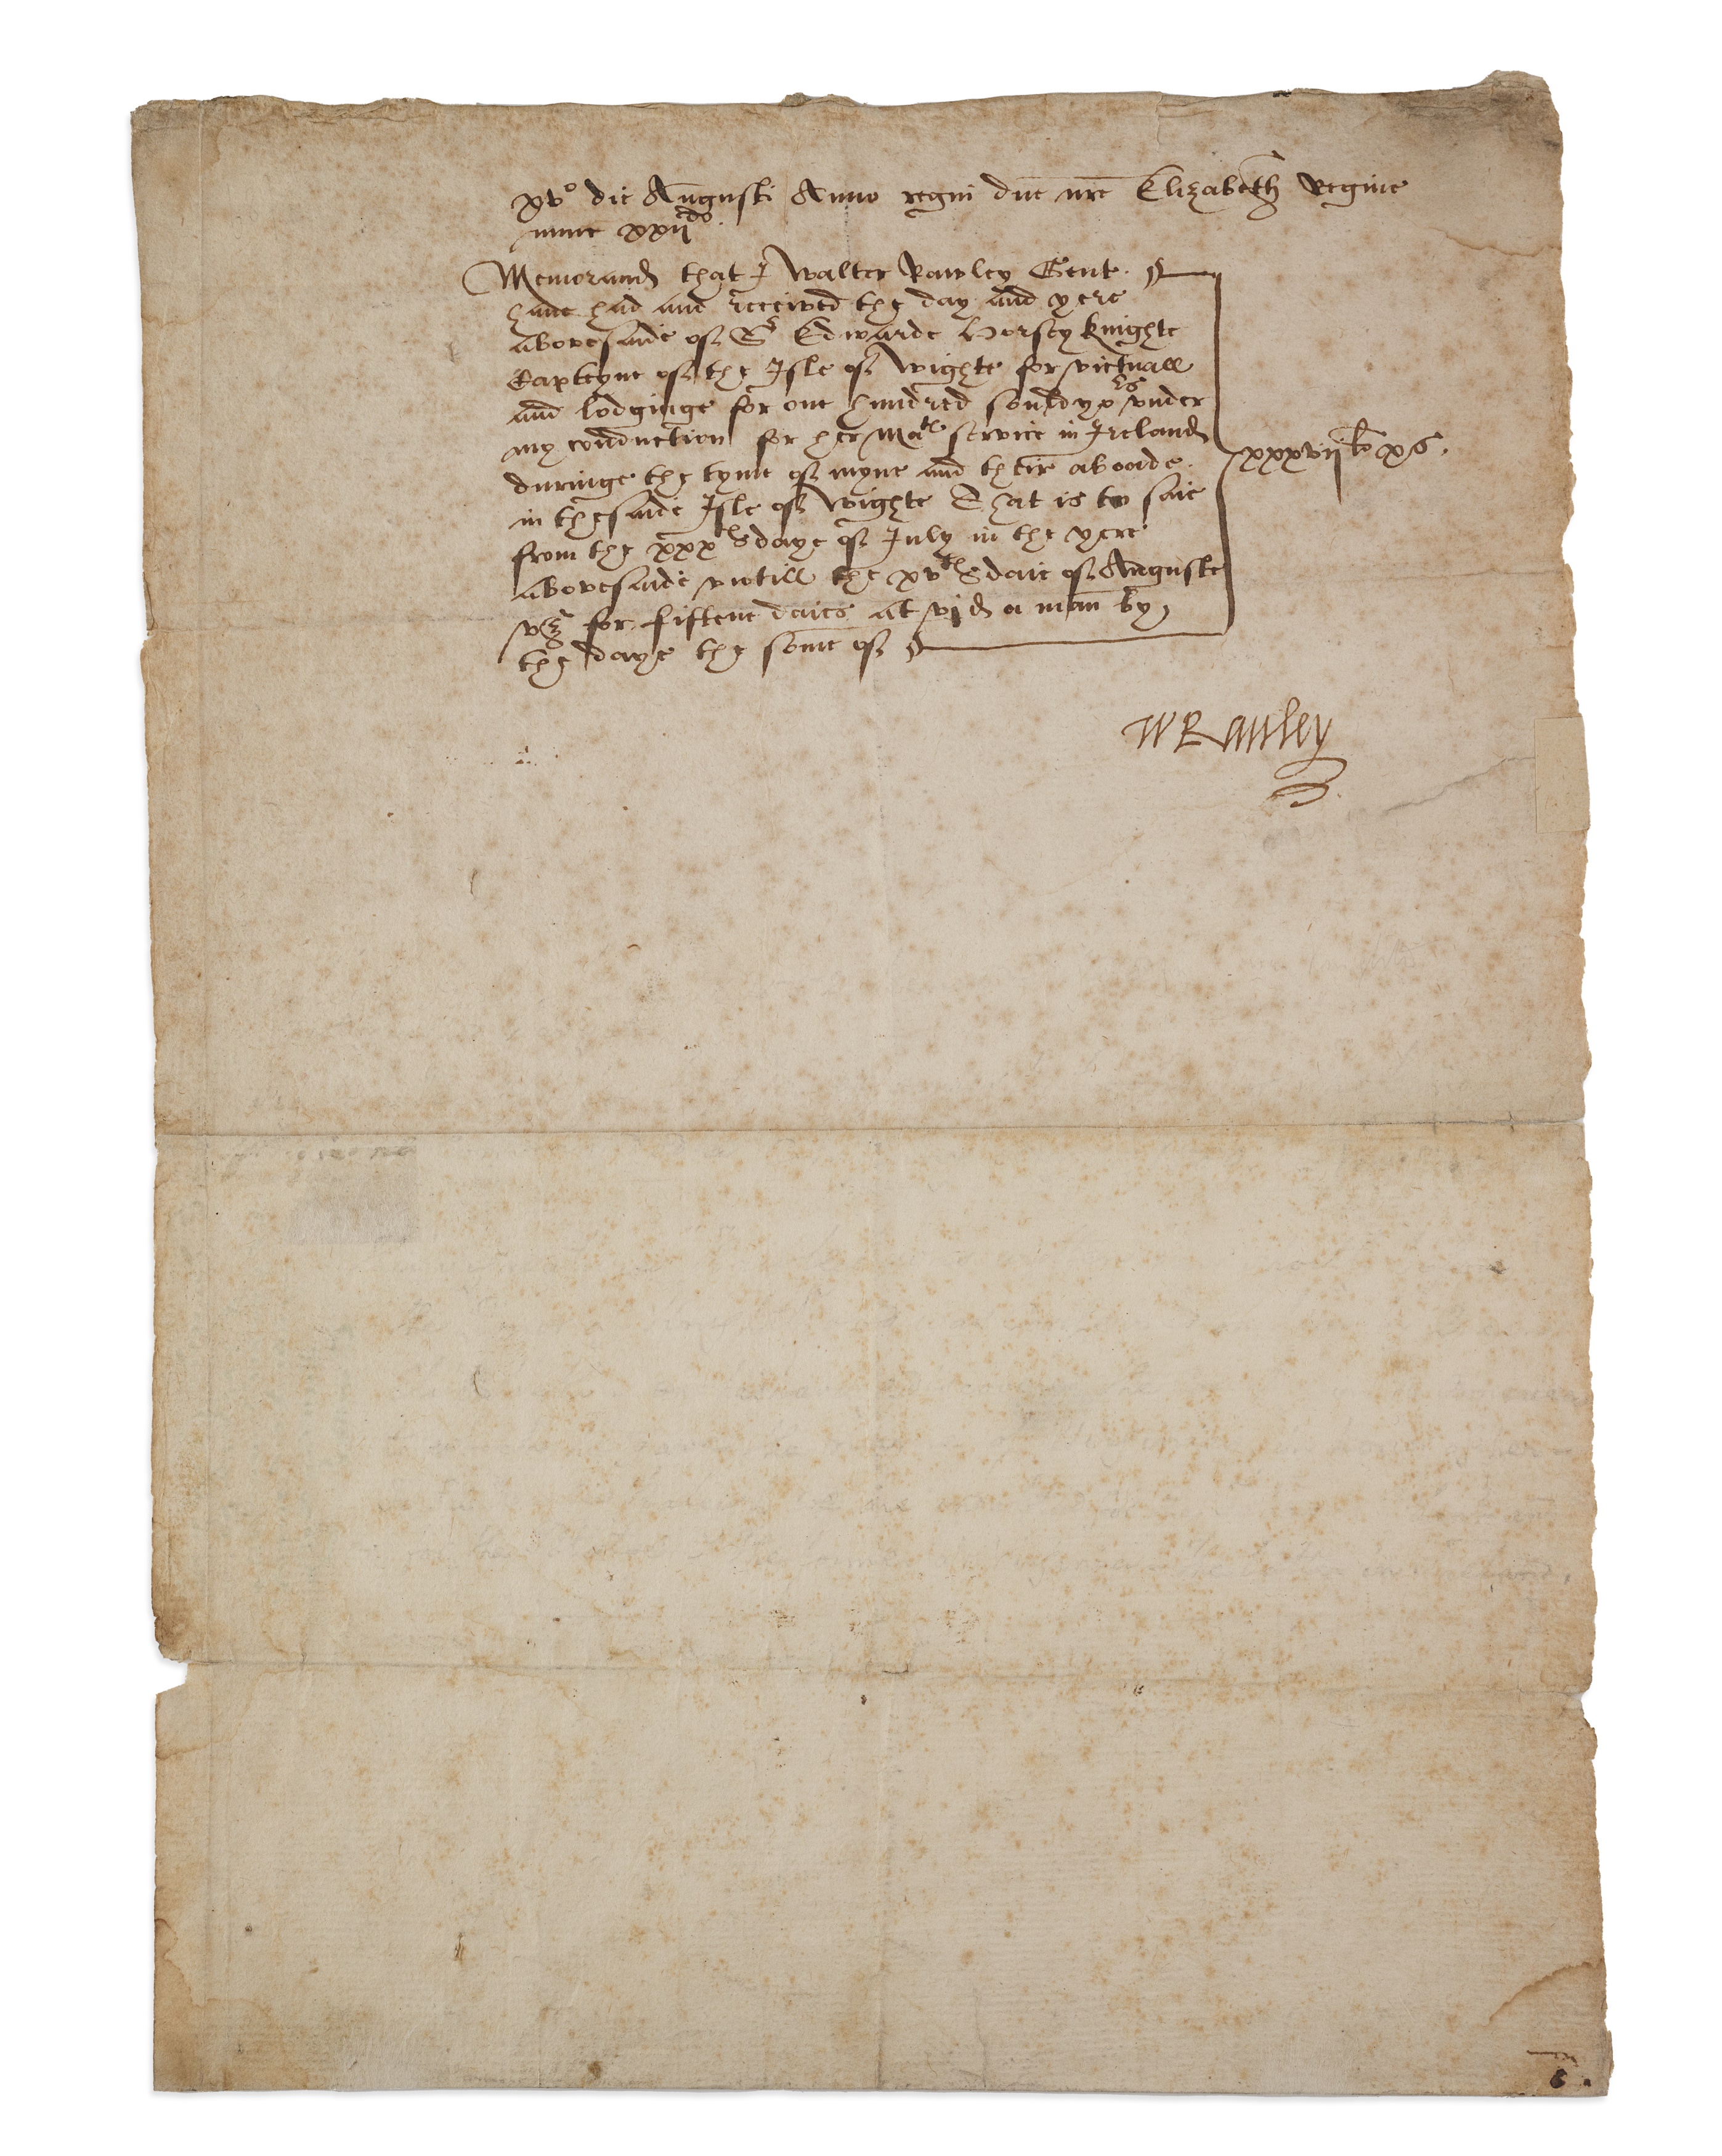 xvo die Augusti Anno regni dne nre Elizabeth Regine
nunc xxiido.
Memorand that I Walter Rawley Gent.
have had and received the day and yere
abovesaide of Sr Edwarde Horsey knighte
Capteyne of the Isle of Wighte for victuall
and lodginge for one hundred souldyors vnder
my conduction for her Mats service in Ireland
duringe the tyme of myne and their aboade.
in thesaide Isle of Wighte That is to saie
from the xxxth daye of July in the yere
abovesaide vntill the xvth daie of Auguste
vz for fiftene daies at vjd a man by
the daye the some of
xxxvijli xs.
WRauley